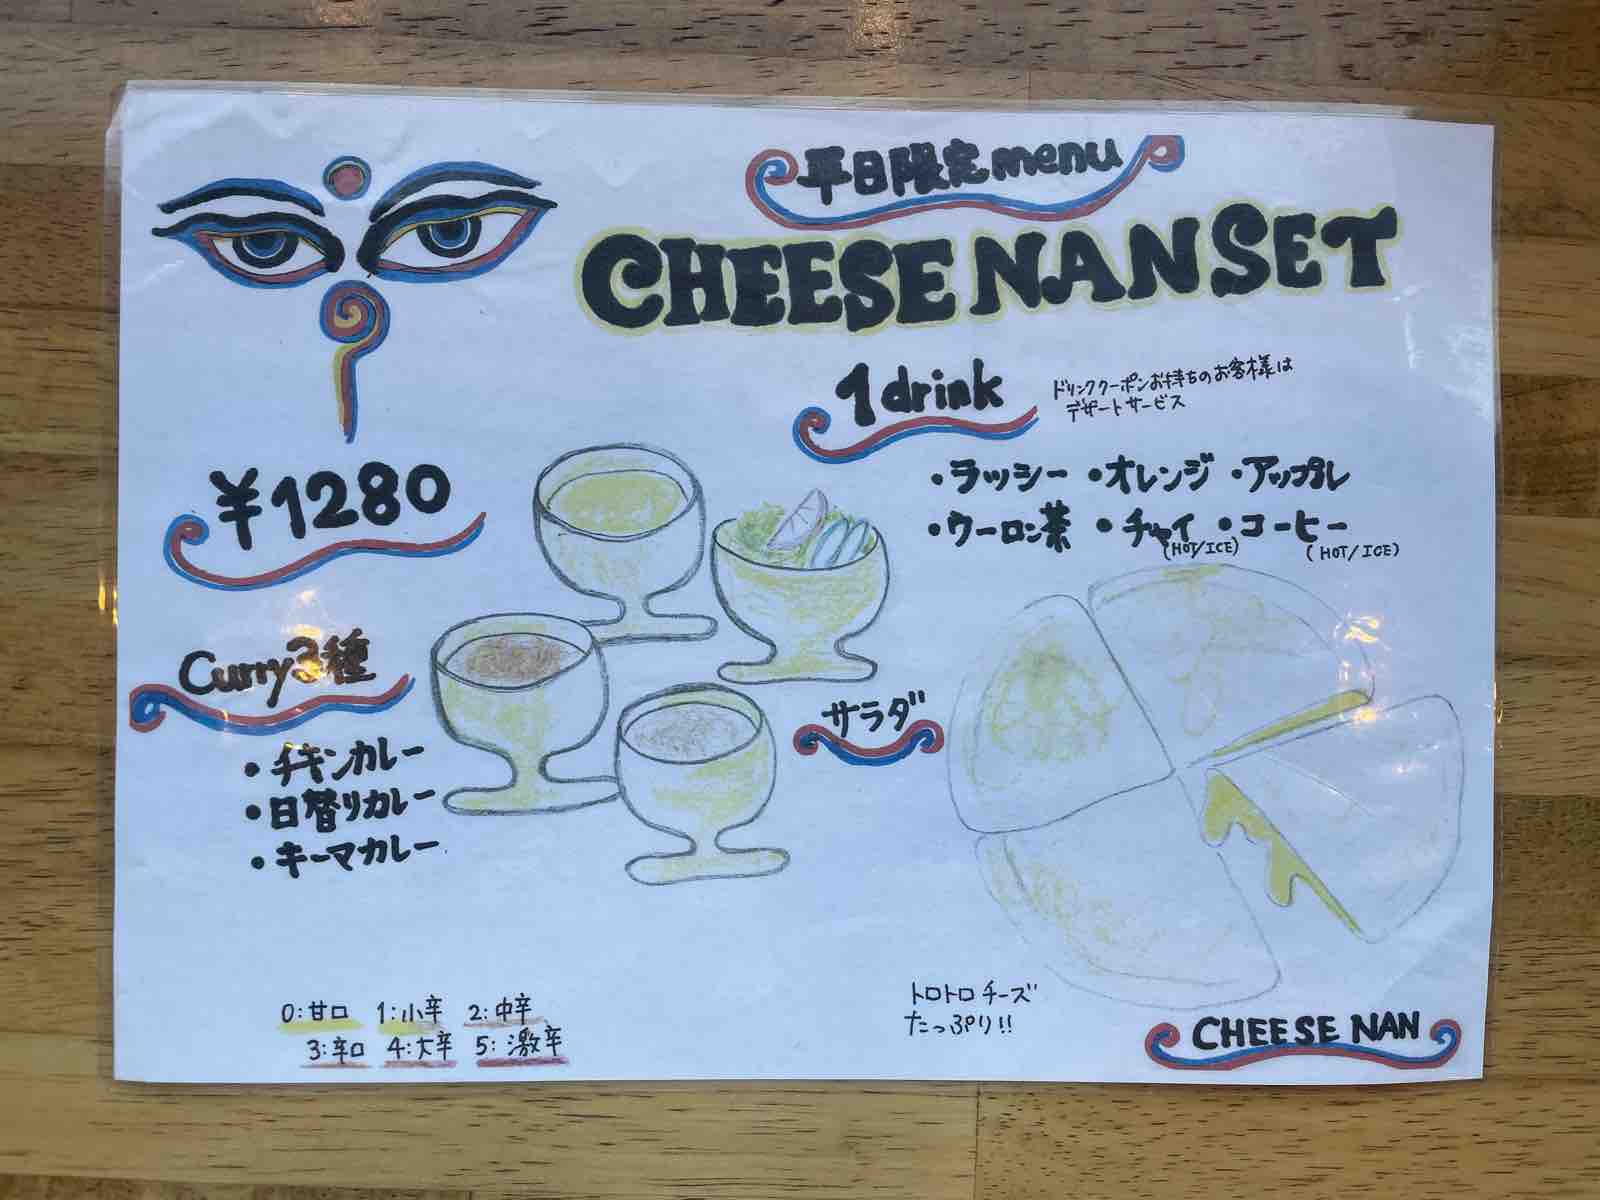 平日限定menu
CHEESE NAN SET
1 drink
ドリンククーポンお持ちのお客様は
デザートサービス
・ラッシー ・オレンジ ・アップル
・ウーロン茶 ・チャイ ・コーヒー
(HOT/ICE) (HOT/ICE)
¥1280
Curry3種
・チキンカレー
・日替りカレー
・キーマカレー
サラダ
0:甘口 1:小辛 2:中辛
3:辛口 4:大辛 5:激辛
トロトロチーズ
たっぷり!!
CHEESE NAN